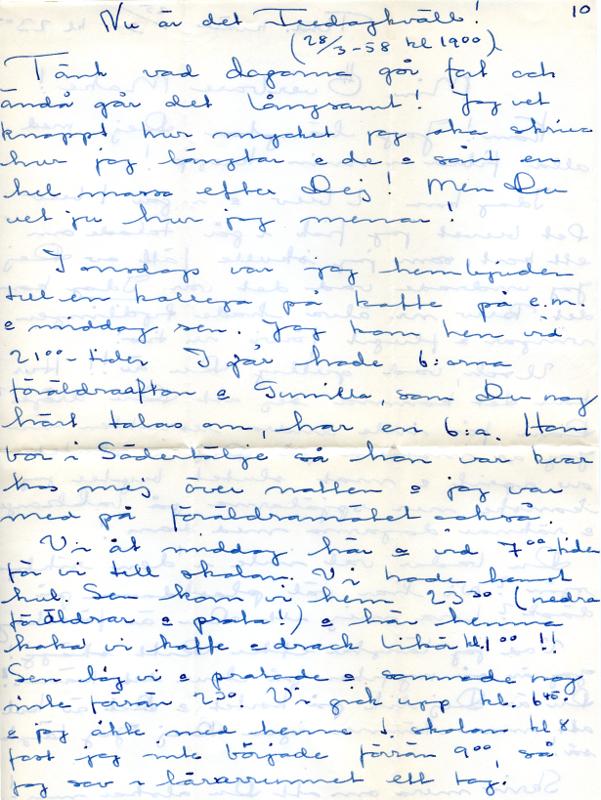 10
Nu är det Fredagkväll!
(28/3-58 kl 19⁰⁰)
Tänk vad dagarna går fort och
ändå går det långsamt! Jag vet
knappt hur mycket jag ska skriva
hur jag längtar o de o sånt en
hel massa efter Dej! Men Du
vet ju hur jag menar!
I onsdags var jag hembjuden
till en kollega på kaffe på e.m.
o middag sen. Jag kom hem vid
21⁰⁰-tiden I går hade 6:orna
föräldraafton o Gunilla, som Du nog
hört talas om, har en 6:a. Hon
bor i Södertälje så hon var kvar
hos mej över natten o jag var
med på föräldramötet också.
Vi åt middag här o vid 7⁰⁰-tiden
for vi till skolan. Vi hade hemst
kul. Sen kom vi hem 23³⁰ (
föräldrar o prata!) o här hemma
kaka vi kaffe o drack likör kl.1⁰⁰!!
Sen låg vi o pratade o somnade nog
inte förrän 2³⁰. Vi gick upp kl. 6⁴⁵
o jag åkte med henne t. skolan kl 8
fast jag inte började förrän 9⁰⁰, så
jag sov i lärarrummet ett tag.